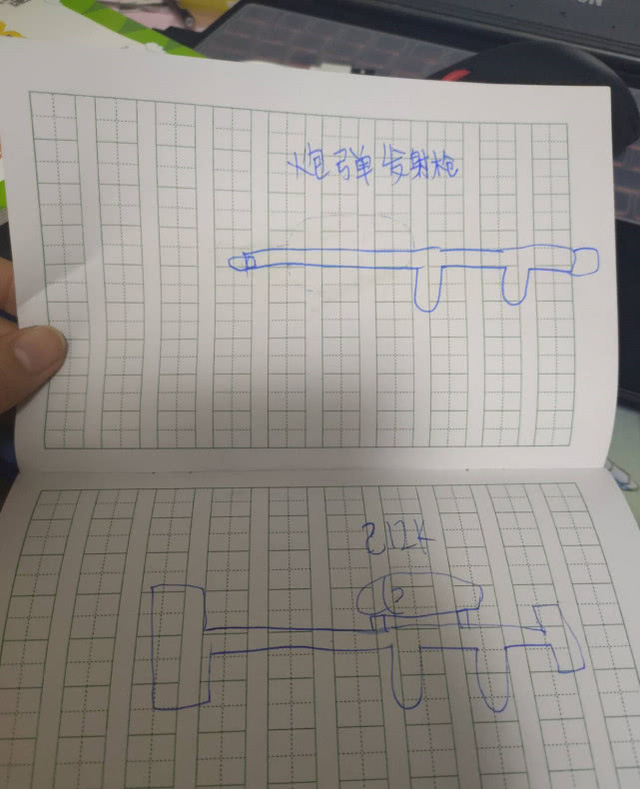 炮弹发射枪
212K